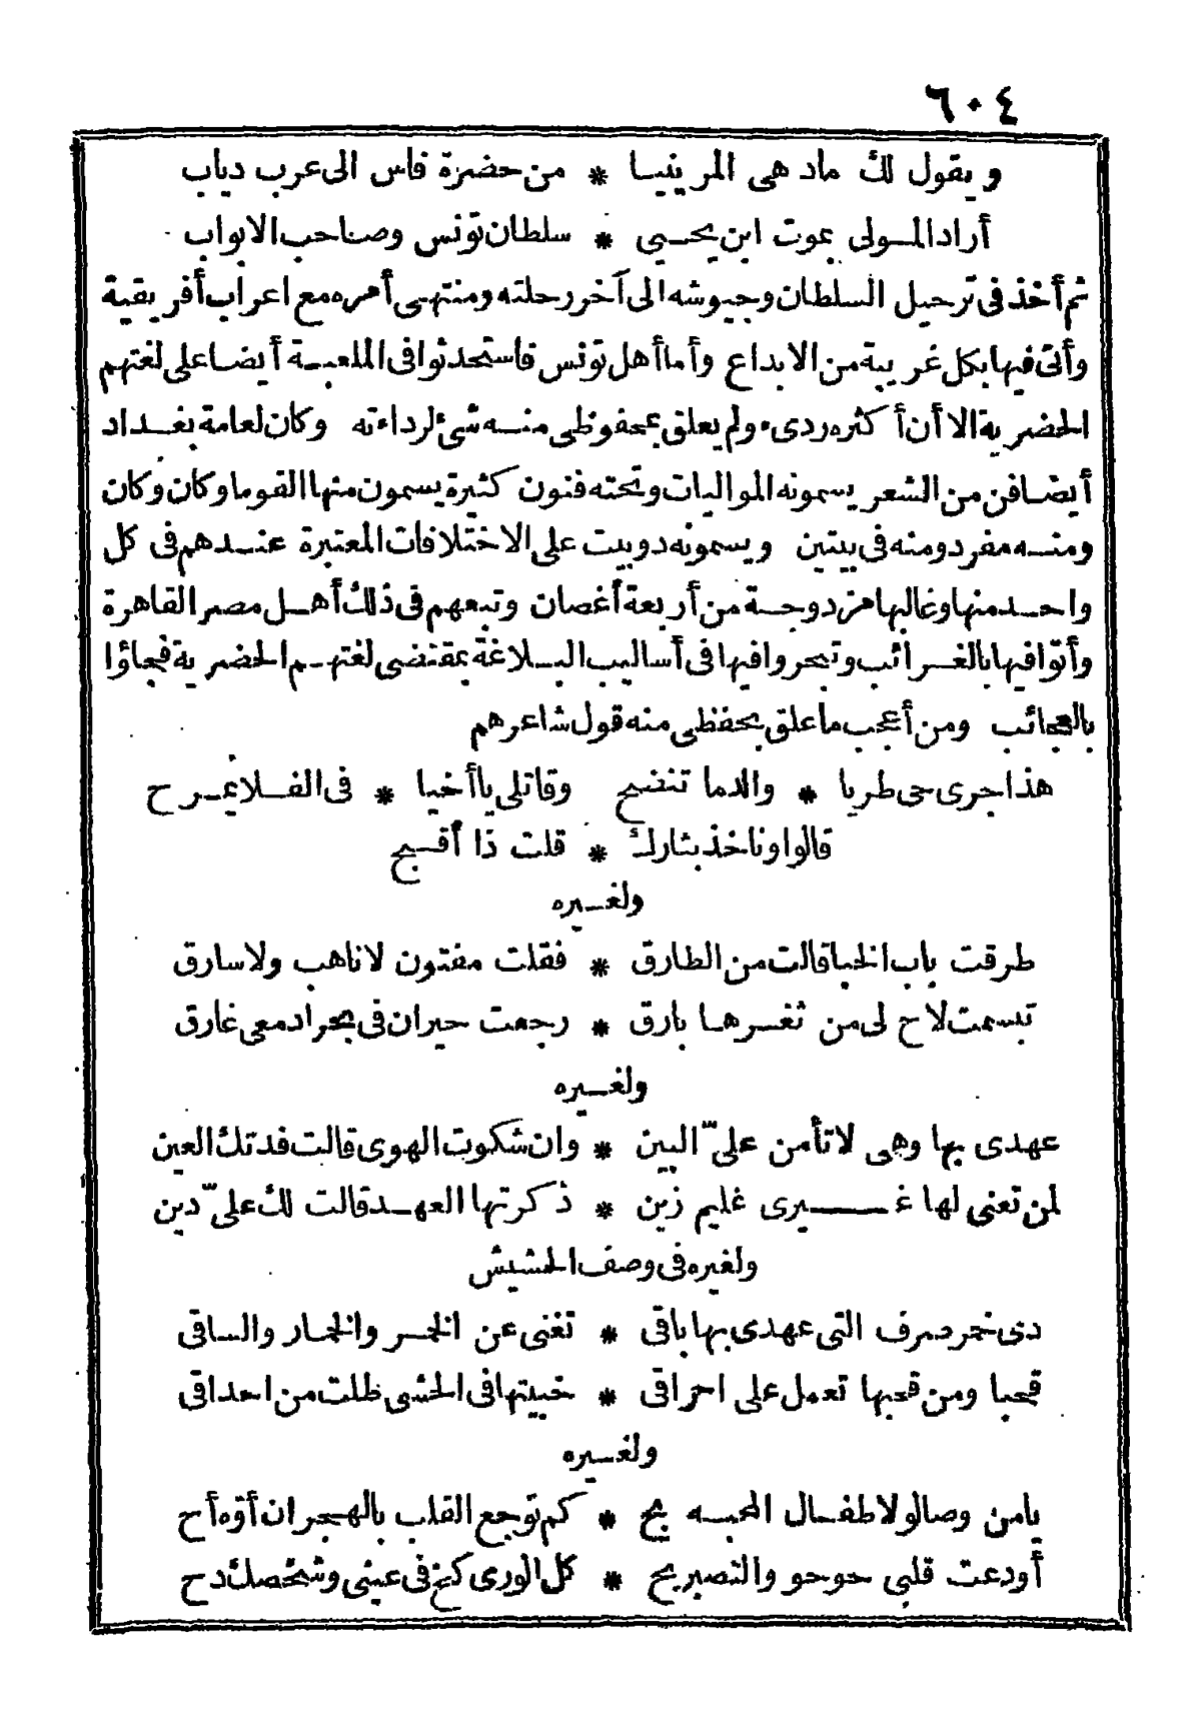 ٦٠٤
ويقول لك مادهى المرينيا * من حضرة فاس الى عرب دياب
أراد المولى بموت ابن يحيى * سلطان تونس وصاحب الابواب
ثم أخذ فى ترحيل السلطان وجيوشه الى آخر رحلته ومنتهى أمره مع اعراب أفريقية
وأتى فيها بكل غريبة من الابداع وأما أهل تونس فاستحدثوا فى الملعبة أيضا على لغتهم
الحضرية الا أن أكثره ردىء ولم يعلق بمحفوظى منه شئ لرداءته وكان لعامة بغداد
أيضا فن من الشعر يسمونه المواليات وتحته فنون كثيرة يسمون منها القوما وكان وكان
ومنه مفرد ومنه فى بيتين ويسمونه دوبيت على الاختلافات المعتبرة عندهم فى كل
واحد منها وغالبها مزدوجة من أربعة أغصان وتبعهم فى ذلك أهل مصر القاهرة
وأتوا فيها بالغرائب وتبحروا فيها فى أساليب البلاغة بمقتضى لغتهم الحضرية فجاؤا
بالعجائب ومن أعجب ما علق بحفظى منه قول شاعرهم
هذا جرى حى طريا * والدما تنضح وقاتلى يا أخيا * فى الفلا يمرح
قالوا وناخذ بثارك * قلت ذا أقبح
ولغيره
طرقت باب الخبا قالت من الطارق * فقلت مفتون لا ناهب ولا سارق
تبسمت لاح لى من ثغرها بارق * رجعت حيران فى بحر ادمعى غارق
ولغيره
عهدى بها وهى لا تأمن علىّ البين * وان شكوت الهوى قالت فدتك العين
لمن تعنى لها غيرى غليم زين * ذكرتها العهد قالت لك علىّ دين
ولغيره فى وصف الحشيش
دى خمر صرف التى عهدى بها باقى * تغنى عن الخمر والخمار والساقى
قحبا ومن قحبها تعمل على احراقى * خبيتها فى الحشى ظلت من احداقى
ولغيره
يا من وصالو لاطفال المحبه بح * كم توجع القلب بالهجران أوّه أح
أودعت قلبى حوحو والتصبر بح * كل الورى كخ فى عينى وشخصك دح